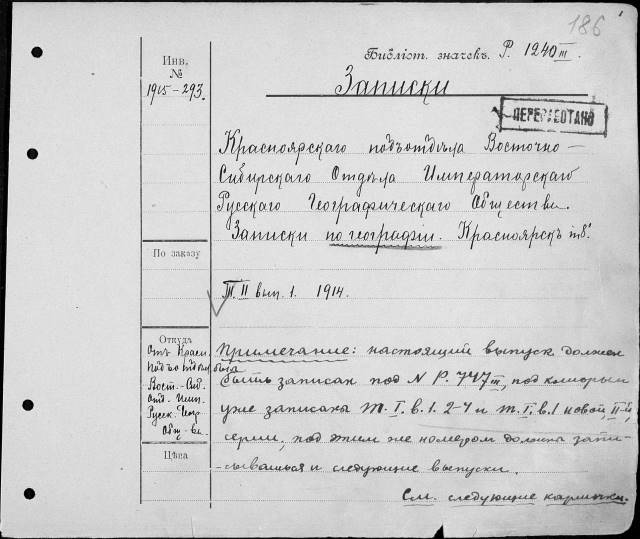 186
Библіот. значекъ. Р. 1240 III.
Инв.
№
1915-293.
Записки
ПЕРЕРАБОТАНО
Красноярскаго подъотдѣла Восточно-
Сибирскаго Отдѣла Императорскаго
Русскаго Географическаго Общества.
Записки по географіи. Красноярскъ in 8°.
По заказу
Т. II вып. 1. 1914.
Откуда
Отъ Красн.
Подъотдѣла
Вост.-Сиб.
Отд. Имп.
Русск. Геог.
Общ-ва.
Цѣна
Примечание: настоящий выпуск должен
быть записан под N Р. 747 III, под которым
уже записана Т. I. в. 1. 2-4 и т. I. в. 1 новой, II-й,
серии, под этим же номером должны запи-
сываться и следующие выпуски.
См. следующие карточки.